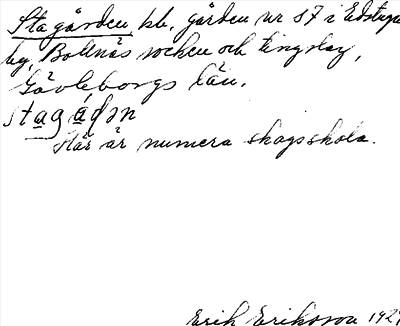 Stagården, kb. gården nr 57 i Edstuga
by, Bollnäs socken och tingslag,
Gävleborgs län.
stagádən
Här är numera skogsskola.
Erik Eriksson 1927